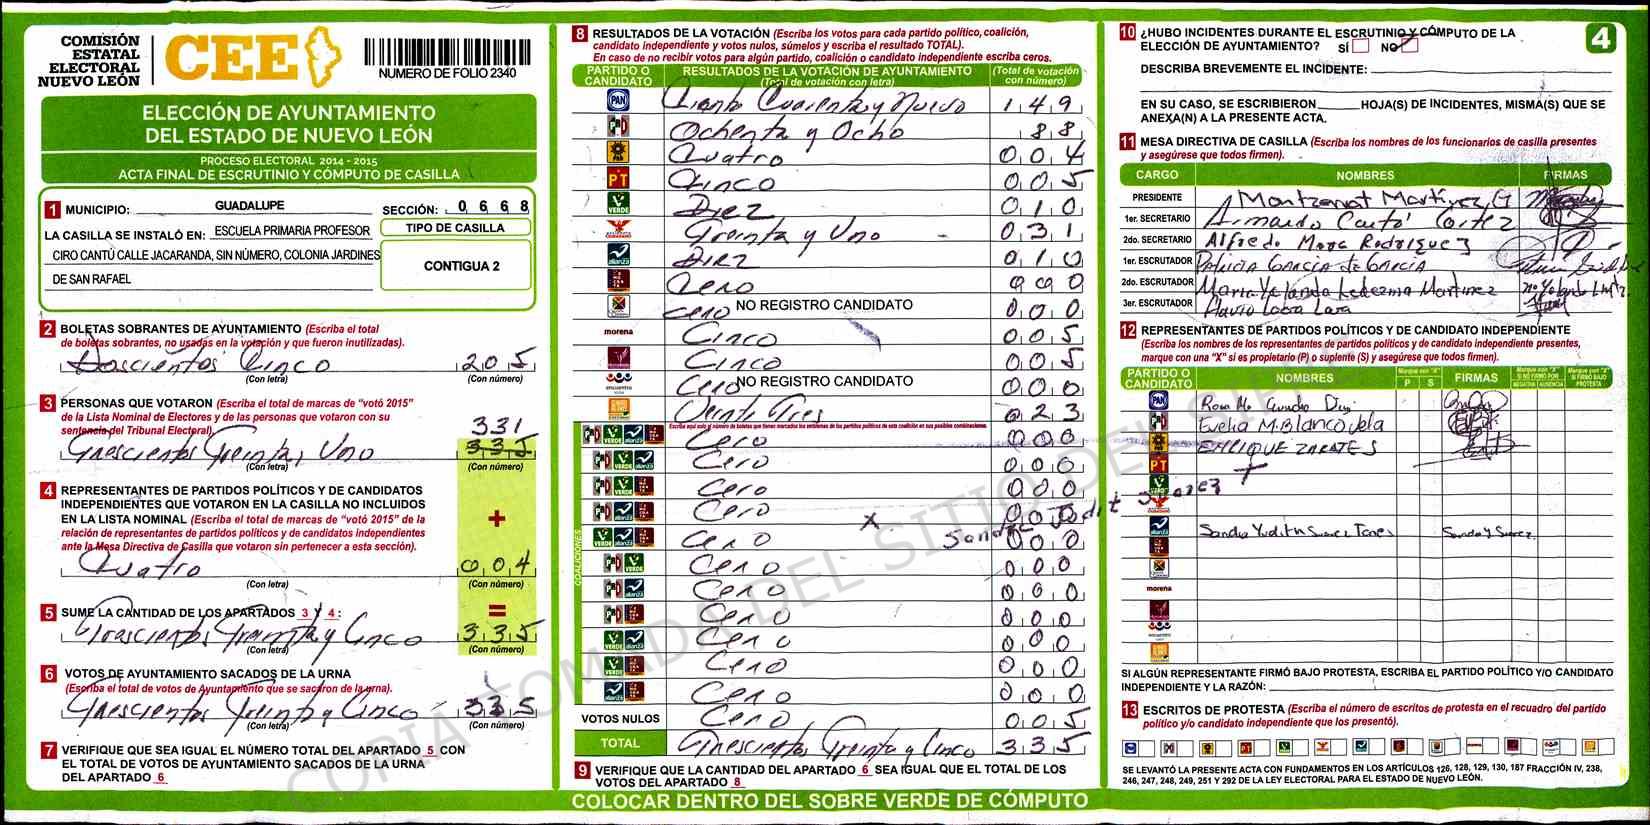 COMISIÓN
ESTATAL
ELECTORAL
NUEVO LEÓN
CEE
NUMERO DE FOLIO 2340
ELECCIÓN DE AYUNTAMIENTO
DEL ESTADO DE NUEVO LEÓN
PROCESO ELECTORAL 2014 - 2015
ACTA FINAL DE ESCRUTINIO Y CÓMPUTO DE CASILLA
1 MUNICIPIO: GUADALUPE SECCIÓN: 0 6 6 8
LA CASILLA SE INSTALÓ EN: ESCUELA PRIMARIA PROFESOR
CIRO CANTÚ CALLE JACARANDA, SIN NÚMERO, COLONIA JARDINES
DE SAN RAFAEL
TIPO DE CASILLA
CONTIGUA 2
2 BOLETAS SOBRANTES DE AYUNTAMIENTO (Escriba el total
de boletas sobrantes, no usadas en la votación y que fueron inutilizadas).
Doscientos Cinco 205
(Con letra) (Con número)
3 PERSONAS QUE VOTARON (Escriba el total de marcas de "votó 2015"
de la Lista Nominal de Electores y de las personas que votaron con su
sentencia del Tribunal Electoral).
331
Trescientos Treinta y Uno 335
(Con letra) (Con número)
4 REPRESENTANTES DE PARTIDOS POLÍTICOS Y DE CANDIDATOS
INDEPENDIENTES QUE VOTARON EN LA CASILLA NO INCLUIDOS
EN LA LISTA NOMINAL (Escriba el total de marcas de "votó 2015" de la
relación de representantes de partidos políticos y de candidatos independientes
ante la Mesa Directiva de Casilla que votaron sin pertenecer a esta sección).
+
Cuatro 004
(Con letra) (Con número)
=
5 SUME LA CANTIDAD DE LOS APARTADOS 3 Y 4 :
Trescientos Treinta y Cinco 335
(Con letra) (Con número)
6 VOTOS DE AYUNTAMIENTO SACADOS DE LA URNA
(Escriba el total de votos de Ayuntamiento que se sacaron de la urna).
Trescientos Treinta y Cinco 335
(Con letra) (Con número)
7 VERIFIQUE QUE SEA IGUAL EL NÚMERO TOTAL DEL APARTADO 5 CON
EL TOTAL DE VOTOS DE AYUNTAMIENTO SACADOS DE LA URNA
DEL APARTADO 6
8 RESULTADOS DE LA VOTACIÓN (Escriba los votos para cada partido político, coalición,
candidato independiente y votos nulos, súmelos y escriba el resultado TOTAL).
En caso de no recibir votos para algún partido, coalición o candidato independiente escriba ceros.
PARTIDO O CANDIDATO RESULTADOS DE LA VOTACIÓN DE AYUNTAMIENTO (Total de votación con letra) (Total de votación con número)
PAN Ciento Cuarenta y Nueve 149
PRD Ochenta y Ocho 88
Cuatro 004
PT Cinco 005
VERDE Diez 010
Treinta y Uno - 031
alianza Diez 010
Cero 000
Cero NO REGISTRO CANDIDATO 000
morena Cinco 005
Cinco 005
encuentro Cero NO REGISTRO CANDIDATO 000
Veinte Tres 023
Cero 000
Cero 000
Cero 000
Cero 000
Cero 000
Cero 000
Cero 000
Cero 000
Cero 000
Cero 000
Cero 000
COALICIONES
X Sandra Judit Suarez
VOTOS NULOS Cero 005
TOTAL Trescientos Treinta y Cinco 335
9 VERIFIQUE QUE LA CANTIDAD DEL APARTADO 6 SEA IGUAL QUE EL TOTAL DE LOS
VOTOS DEL APARTADO 8
COLOCAR DENTRO DEL SOBRE VERDE DE CÓMPUTO
4
10 ¿HUBO INCIDENTES DURANTE EL ESCRUTINIO Y CÓMPUTO DE LA
ELECCIÓN DE AYUNTAMIENTO? SÍ NO
DESCRIBA BREVEMENTE EL INCIDENTE:
EN SU CASO, SE ESCRIBIERON HOJA(S) DE INCIDENTES, MISMA(S) QUE SE
ANEXA(N) A LA PRESENTE ACTA.
11 MESA DIRECTIVA DE CASILLA (Escriba los nombres de los funcionarios de casilla presentes
y asegúrese que todos firmen).
CARGO NOMBRES FIRMAS
PRESIDENTE Montzerrat Martinez G
1er. SECRETARIO Armando Cantú Cortez
2do. SECRETARIO Alfredo Mora Rodriguez
1er. ESCRUTADOR Patricia Garcia de Garcia
2do. ESCRUTADOR Maria Yolanda Ledezma Martinez
3er. ESCRUTADOR Flavio Lobra Lara
12 REPRESENTANTES DE PARTIDOS POLÍTICOS Y DE CANDIDATO INDEPENDIENTE
(Escriba los nombres de los representantes de partidos políticos y de candidato independiente presentes,
marque con una "X" si es propietario (P) o suplente (S) y asegúrese que todos firmen).
PARTIDO O CANDIDATO NOMBRES Marque con "X" P S FIRMAS
PAN Rosa Ma
Evelia M. Blanco Vela
ENRIQUE ZARATES
PT
VERDE
alianza Sandra Yudith Suarez Torres Sanda Y Suarez
morena
SI ALGÚN REPRESENTANTE FIRMÓ BAJO PROTESTA, ESCRIBA EL PARTIDO POLÍTICO Y/O CANDIDATO
INDEPENDIENTE Y LA RAZÓN:
13 ESCRITOS DE PROTESTA (Escriba el número de escritos de protesta en el recuadro del partido
político y/o candidato independiente que los presentó).
SE LEVANTÓ LA PRESENTE ACTA CON FUNDAMENTOS EN LOS ARTÍCULOS 126, 128, 129, 130, 187 FRACCIÓN IV, 238,
246, 247, 248, 249, 251 Y 292 DE LA LEY ELECTORAL PARA EL ESTADO DE NUEVO LEÓN.
COPIA TOMADA DEL SITIO DEL SIPRE